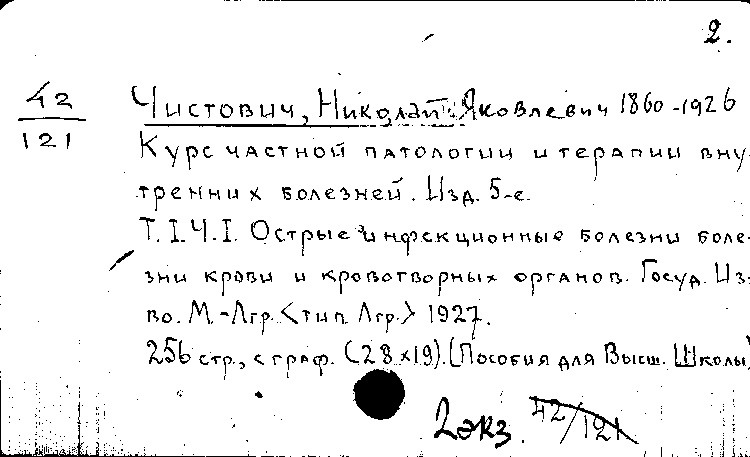 2.
42
121
Чистович, Николай Яковлевич 1860-1926
Курс частной патологии и терапии вну-
тренних болезней. Изд. 5-е.
Т.I.Ч.I. Острые инфекционные болезни боле-
зни крови и кроветворных органов. Госуд. Из-
во. М.-Лгр. <тип. Лгр.> 1927.
256 стр., с граф. (28x19). [Пособия для Высш. Школы]
2 экз. 42/121